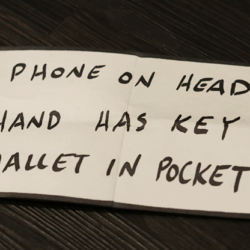 PHONE ON HEAD
HAND HAS KEY
WALLET IN POCKET